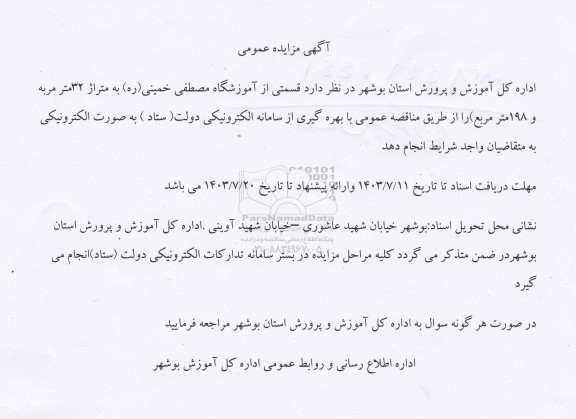 آگهی مزایده عمومی
اداره کل آموزش و پرورش استان بوشهر در نظر دارد قسمتی از آموزشگاه مصطفی خمینی(ره) به متراژ ۳۲متر مربه
و ۱۹۸متر مربع)را از طریق مناقصه عمومی با بهره گیری از سامانه الکترونیکی دولت( ستاد ) به صورت الکترونیکی
به متقاضیان واجد شرایط انجام دهد
مهلت دریافت اسناد تا تاریخ ۱۴۰۳/۷/۱۱ وارائه پیشنهاد تا تاریخ ۱۴۰۳/۷/۲۰ می باشد
ParsNamadData
پایگاه اطلاع رسانی مناقصه و مزایده
نشانی محل تحویل اسناد:بوشهر خیابان شهید عاشوری –خیابان شهید آوینی .اداره کل آموزش و پرورش استان
بوشهردر ضمن متذکر می گردد کلیه مراحل مزایده در بستر سامانه تدارکات الکترونیکی دولت (ستاد)انجام می
گیرد
در صورت هر گونه سوال به اداره کل آموزش و پرورش استان بوشهر مراجعه فرمایید
اداره اطلاع رسانی و روابط عمومی اداره کل آموزش بوشهر